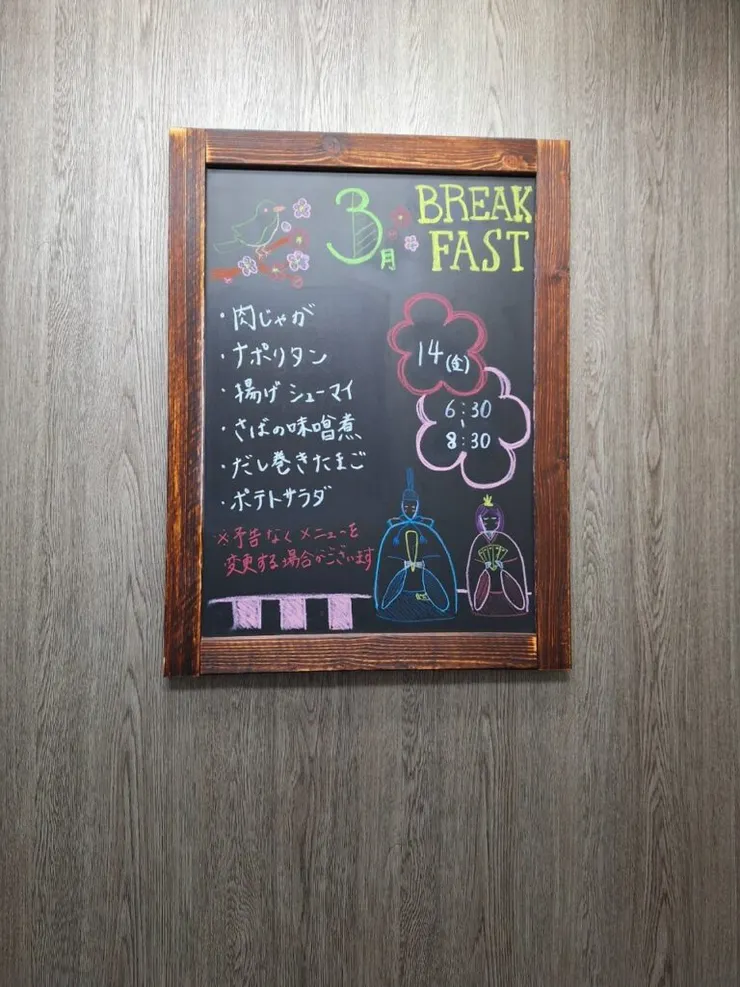 3月
BREAK
FAST
・肉じゃが
・ナポリタン
・揚げシューマイ
・さばの味噌煮
・だし巻きたまご
・ポテトサラダ
※予告なくメニューを
変更する場合がございます
14(金)
6:30
〜
8:30